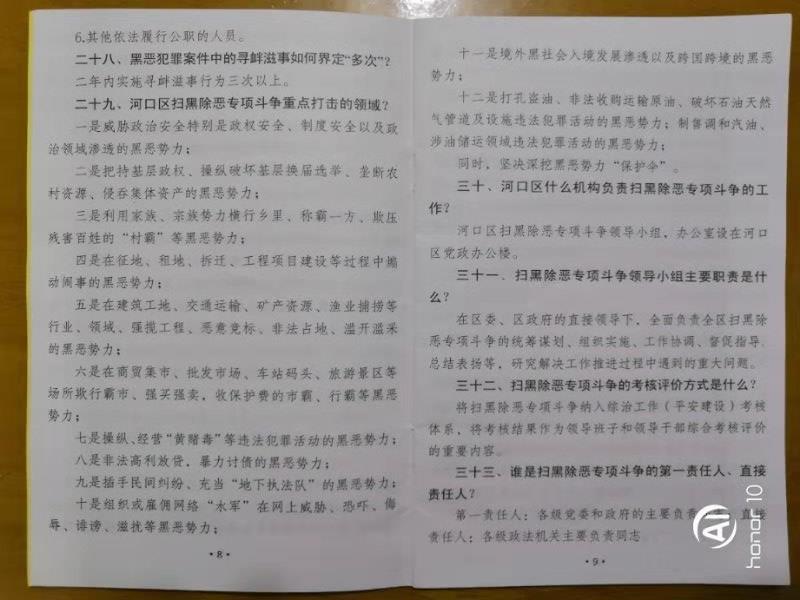 6.其他依法履行公职的人员。
二十八、黑恶犯罪案件中的寻衅滋事如何界定“多次”？
二年内实施寻衅滋事行为三次以上。
二十九、河口区扫黑除恶专项斗争重点打击的领域？
一是威胁政治安全特别是政权安全、制度安全以及政
治领域渗透的黑恶势力；
二是把持基层政权、操纵破坏基层换届选举、垄断农
村资源、侵吞集体资产的黑恶势力；
三是利用家族、宗族势力横行乡里、称霸一方、欺压
残害百姓的“村霸”等黑恶势力；
四是在征地、租地、拆迁、工程项目建设等过程中煽
动闹事的黑恶势力；
五是在建筑工地、交通运输、矿产资源、渔业捕捞等
行业、领域，强揽工程、恶意竞标、非法占地、滥开滥采
的黑恶势力；
六是在商贸集市、批发市场、车站码头、旅游景区等
场所欺行霸市、强买强卖，收保护费的市霸、行霸等黑恶
势力；
七是操纵、经营“黄赌毒”等违法犯罪活动的黑恶势力；
八是非法高利放贷，暴力讨债的黑恶势力；
九是插手民间纠纷、充当“地下执法队”的黑恶势力；
十是组织或雇佣网络“水军”在网上威胁、恐吓、侮
辱、诽谤、滋扰等黑恶势力；
·8·
十一是境外黑社会入境发展渗透以及跨国跨境的黑恶
势力；
十二是打孔盗油、非法收购运输原油、破坏石油天然
气管道及设施违法犯罪活动的黑恶势力；制售调和汽油、
涉油储运领域违法犯罪活动的黑恶势力。
同时，坚决深挖黑恶势力“保护伞”。
三十、河口区什么机构负责扫黑除恶专项斗争的工
作？
河口区扫黑除恶专项斗争领导小组，办公室设在河口
区党政办公楼。
三十一、扫黑除恶专项斗争领导小组主要职责是什
么？
在区委、区政府的直接领导下，全面负责全区扫黑除
恶专项斗争的统筹谋划、组织实施、工作协调、督促指导、
总结表扬等，研究解决工作推进过程中遇到的重大问题。
三十二、扫黑除恶专项斗争的考核评价方式是什么？
将扫黑除恶专项斗争纳入综治工作（平安建设）考核
体系，将考核结果作为领导班子和领导干部综合考核评价
的重要内容。
三十三、谁是扫黑除恶专项斗争的第一责任人、直接
责任人？
第一责任人：各级党委和政府的主要负责 直接
责任人：各级政法机关主要负责同志
·9·
AI
honor 10